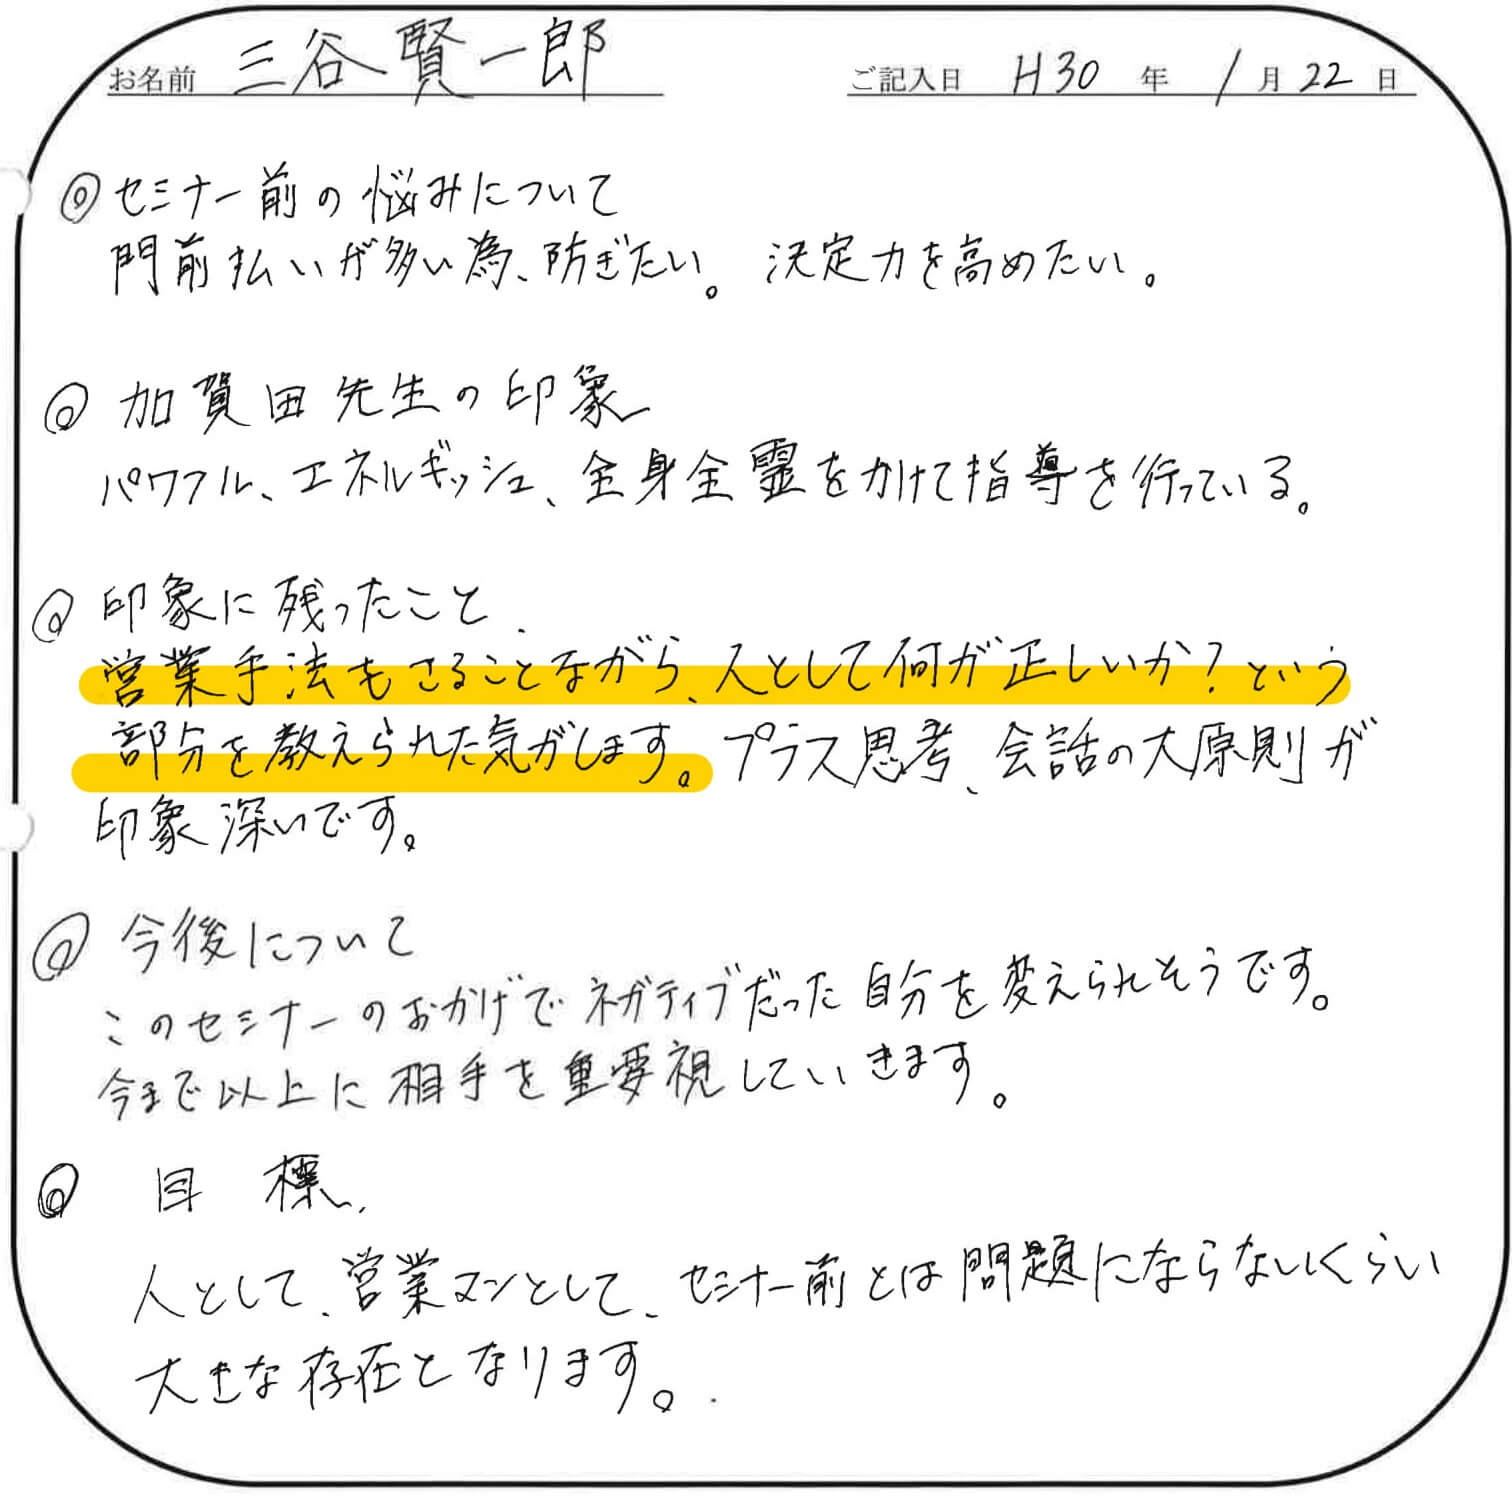 お名前 三谷賢一郎 ご記入日 H30年 1月22日
◎セミナー前の悩みについて
門前払いが多い為、防ぎたい。決定力を高めたい。
◎加賀田先生の印象
パワフル、エネルギッシュ、全身全霊をかけて指導を行っている。
◎印象に残ったこと
営業手法もさることながら、人として何が正しいか?という
部分を教えられた気がします。プラス思考、会話の大原則が
印象深いです。
◎今後について
このセミナーのおかげでネガティブだった自分を変えられそうです。
今まで以上に相手を重要視していきます。
◎目標
人として、営業マンとして、セミナー前とは問題にならないくらい
大きな存在となります。